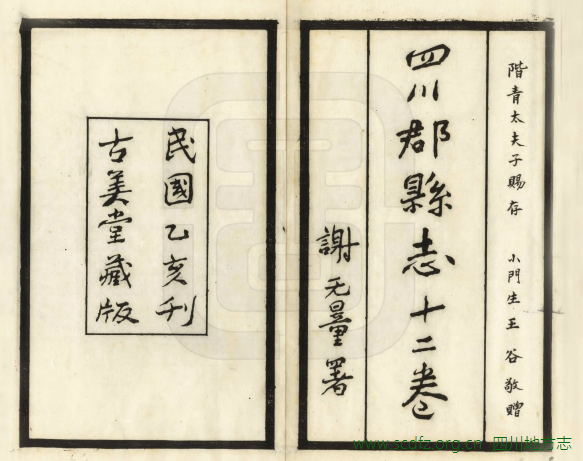 階青太夫子賜存 小門生王谷敬贈
四川郡縣志十二卷
謝无量署
民國乙亥刋
古美堂藏版
www.scdfz.org.cn 四川地方志